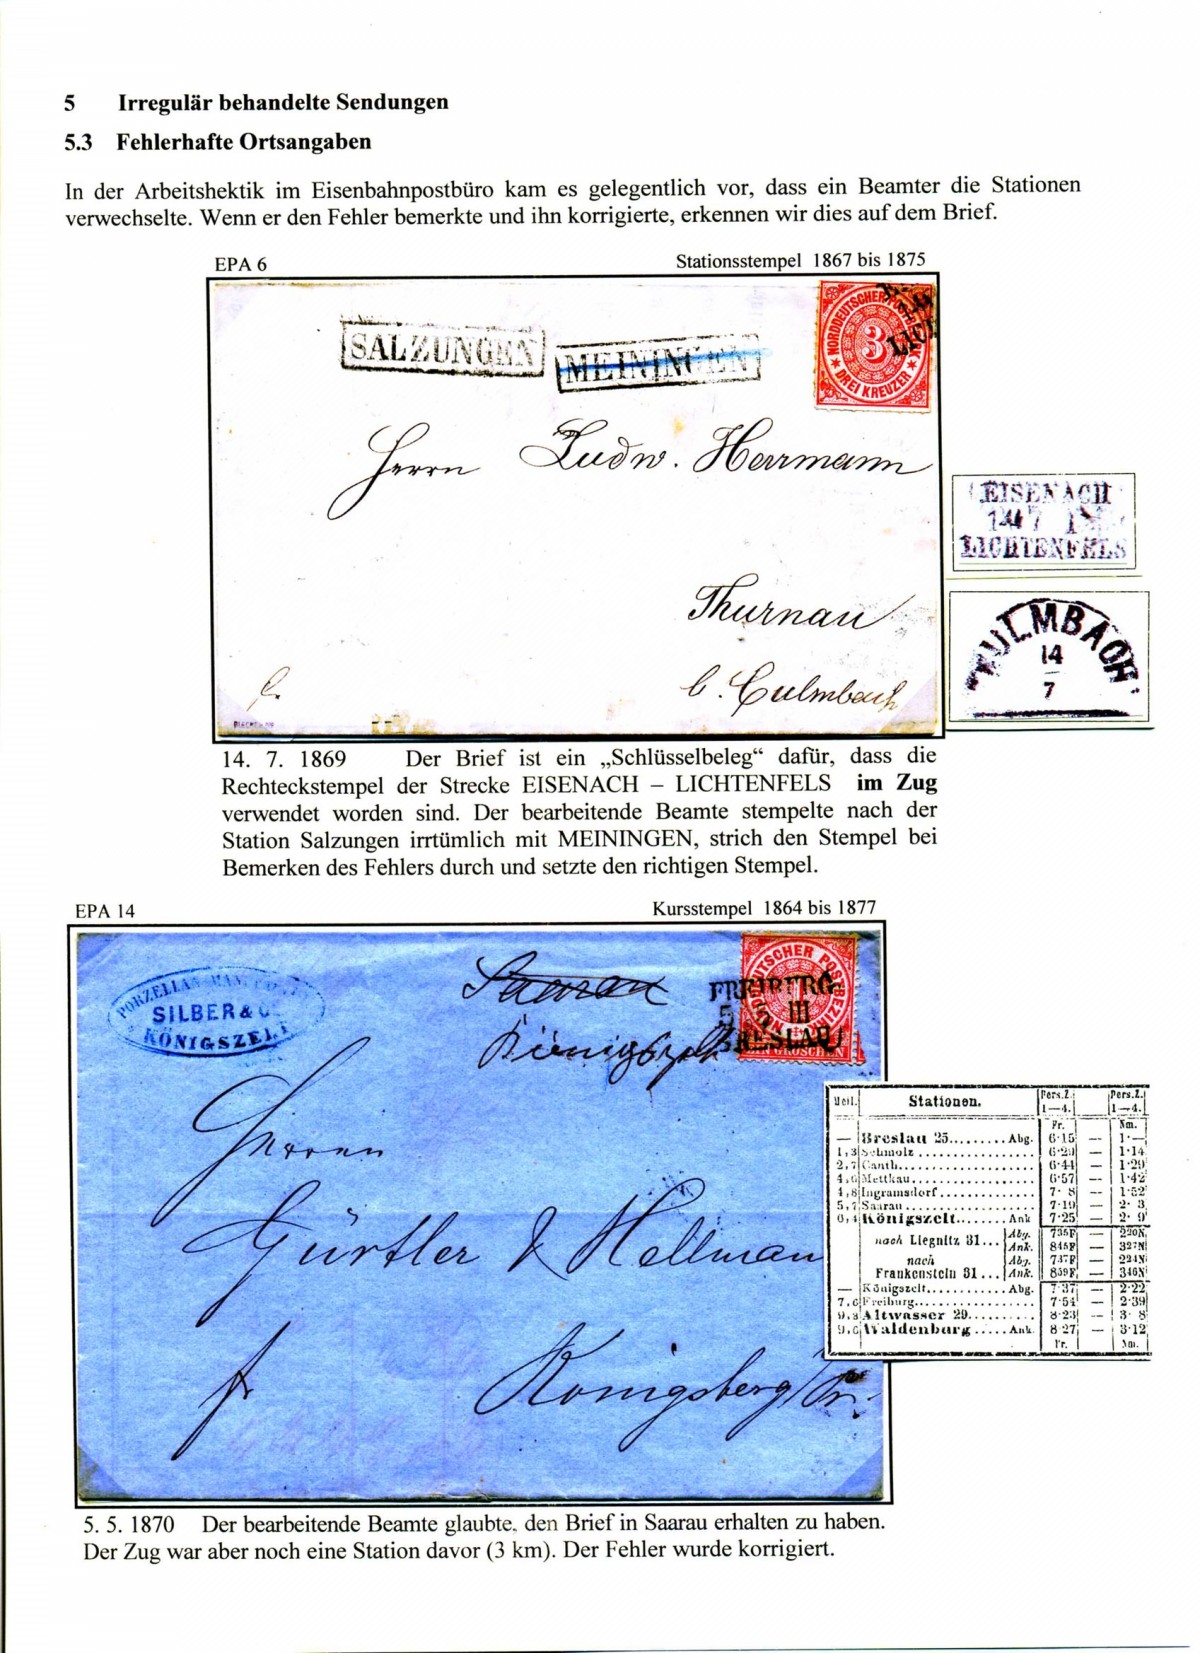 5 Irregulär behandelte Sendungen
5.3 Fehlerhafte Ortsangaben
In der Arbeitshektik im Eisenbahnpostbüro kam es gelegentlich vor, dass ein Beamter die Stationen
verwechselte. Wenn er den Fehler bemerkte und ihn korrigierte, erkennen wir dies auf dem Brief.
EPA 6 Stationsstempel 1867 bis 1875
SALZUNGEN
MEININGEN
NORDDEUTSCHER
3
DREI KREUZER
LICH
Herrn Ludw. Herrmann
Thurnau
b. Culmbach
EISENACH
LICHTENFELS
KULMBACH
14
7
14. 7. 1869 Der Brief ist ein „Schlüsselbeleg“ dafür, dass die
Rechteckstempel der Strecke EISENACH – LICHTENFELS im Zug
verwendet worden sind. Der bearbeitende Beamte stempelte nach der
Station Salzungen irrtümlich mit MEININGEN, strich den Stempel bei
Bemerken des Fehlers durch und setzte den richtigen Stempel.
EPA 14 Kursstempel 1864 bis 1877
SILBER & C
KÖNIGSZELT
Saarau
Königszelt
FREIBURG
5 III
BRESLAU
GROSCHEN
Herren
Gürtler & Hellmann
fr Königsberg/Pr.
Meil. Stationen. Pers.Z. 1—4. Pers.Z. 1—4.
Fr. Nm.
— Breslau 25......... Abg. 6·15 — 1·—
1,3 Schmolz 6·29 — 1·14
2,7 Canth 6·44 — 1·29
4,0 Mettkau 6·57 — 1·42
4,8 Ingramsdorf 7· 8 — 1·52
5,7 Saarau 7·19 — 2· 3
6,4 Königszelt....... Ank 7·25 — 2· 9
nach Liegnitz 31... Abg. 735F — 220N
Ank. 845F — 327N
nach Abg. 737F — 224N
Frankenstein 31... Ank. 859F — 346N
— Königszelt Abg. 7·37 — 2·22
7,6 Freiburg 7·54 — 2·39
9,3 Altwasser 29 8·23 — 3· 8
9,6 Waldenburg ..... Ank. 8·27 — 3·12
Fr. Nm.
5. 5. 1870 Der bearbeitende Beamte glaubte, den Brief in Saarau erhalten zu haben.
Der Zug war aber noch eine Station davor (3 km). Der Fehler wurde korrigiert.